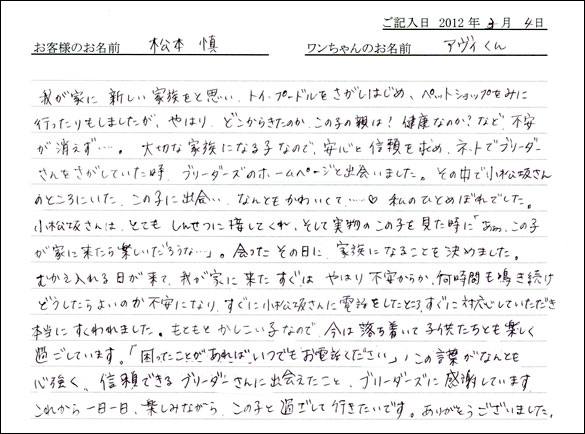 ご記入日 2012 年 3 月 4 日
お客様のお名前 松本 慎 ワンちゃんのお名前 アヴィくん
我が家に 新しい家族をと思い、トイ・プードルをさがしはじめ、ペットショップをみに
行ったりもしましたが、やはり、どこからきたのか、この子の親は？健康なのか？など、不安
が消えず…。大切な家族になる子なので、安心と信頼を求め、ネットでブリーダー
さんをさがしていた時、ブリーダーズのホームページと出会いました。その中で小松坂さん
のところにいた、この子に出会い、なんともかわいくて……♡ 私のひとめぼれでした。
小松坂さんは、とてもしんせつに接してくれ、そして実物のこの子を見た時に「あぁ、この子
が家に来たら楽しいだろうな…」。会ったその日に、家族になることを決めました。
むかえ入れる日が来て、我が家に来た すぐは やはり不安からか、何時間も鳴き続け
どうしたらよいのか不安になり、すぐに小松坂さんに電話をしたところ、すぐに対応していただき
本当にすくわれました。もともとかしこい子なので、今は落ち着いて子供たちとも楽しく
過ごしています。「困ったことがあれば、いつでもお電話ください」、この言葉がなんとも
心強く、信頼できるブリーダーさんに出会えたこと、ブリーダーズに感謝しています
これから一日一日、楽しみながら、この子と過ごして行きたいです。ありがとうございました。